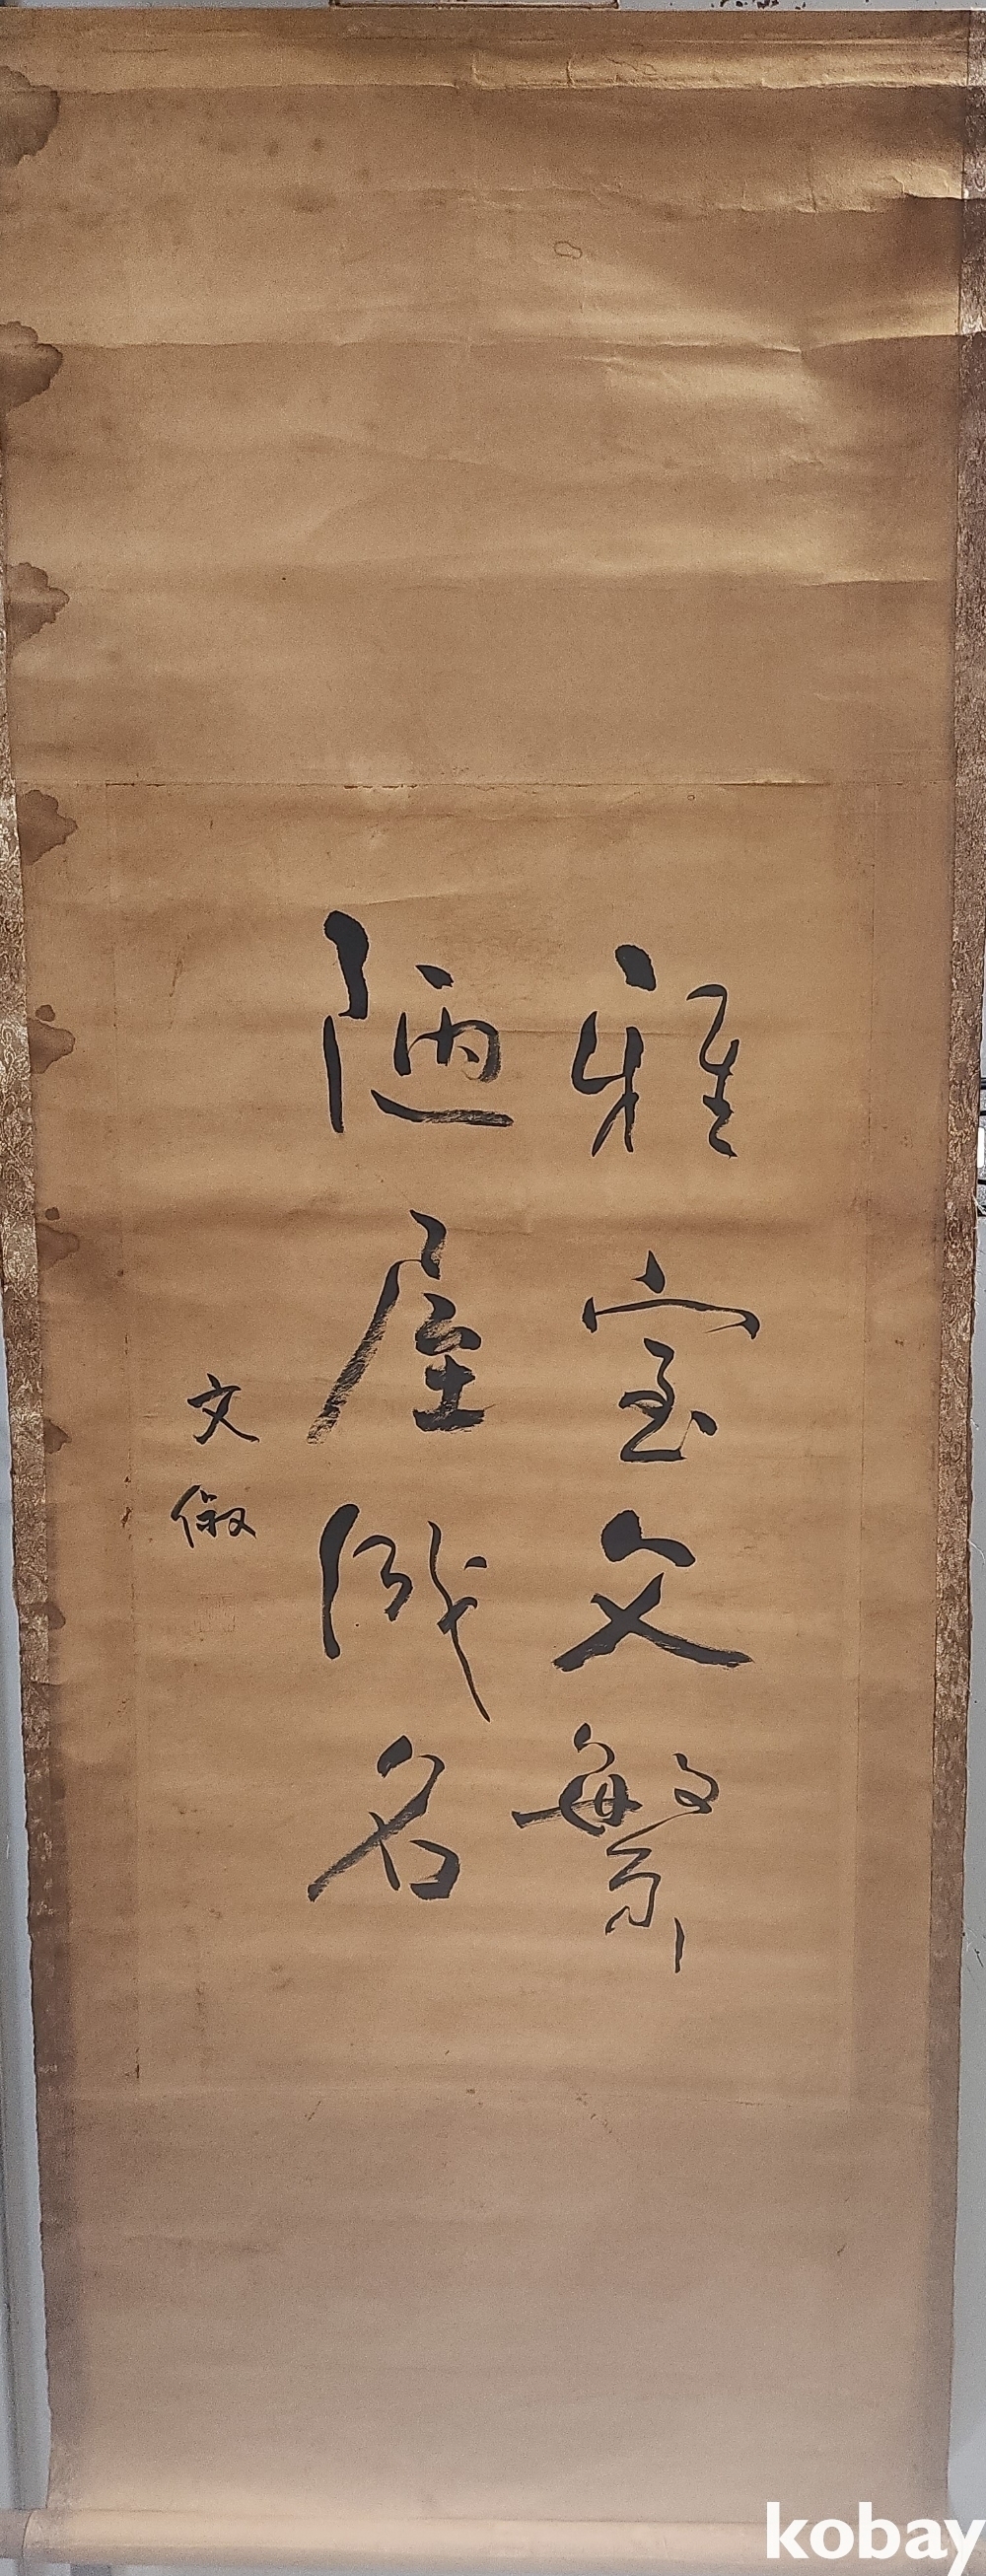 雅室文繁
陋屋識名
文俶
kobay